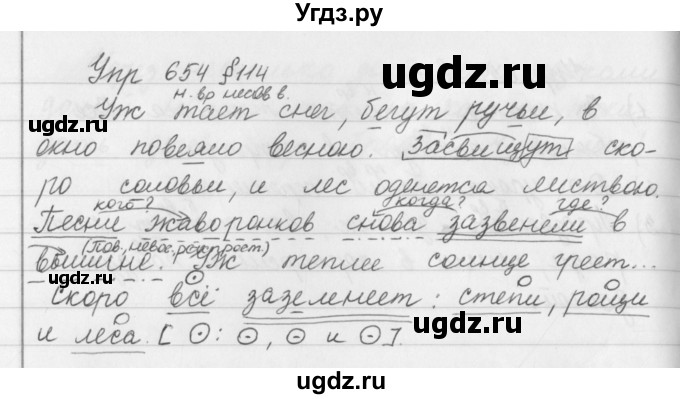 Угдз.ру
Упр 654 §114
ugdz.ru
н. вр несов в.
Уж тает снег, бегут ручьи, в
ugdz.ru
окно повеяло весною. Засвищут ско-
ро соловьи, и лес оденется листвою.
кого? когда? где?
Песни жаворонков снова зазвенели в
(Пов., невос., распрост.)
вышине. Уж теплее солнце греет...
ugdz.ru
скоро всё зазеленеет: степи, рощи
и леса. [⊙: ⊙, ⊙ и ⊙].
ugdz.ru
ugdz.ru